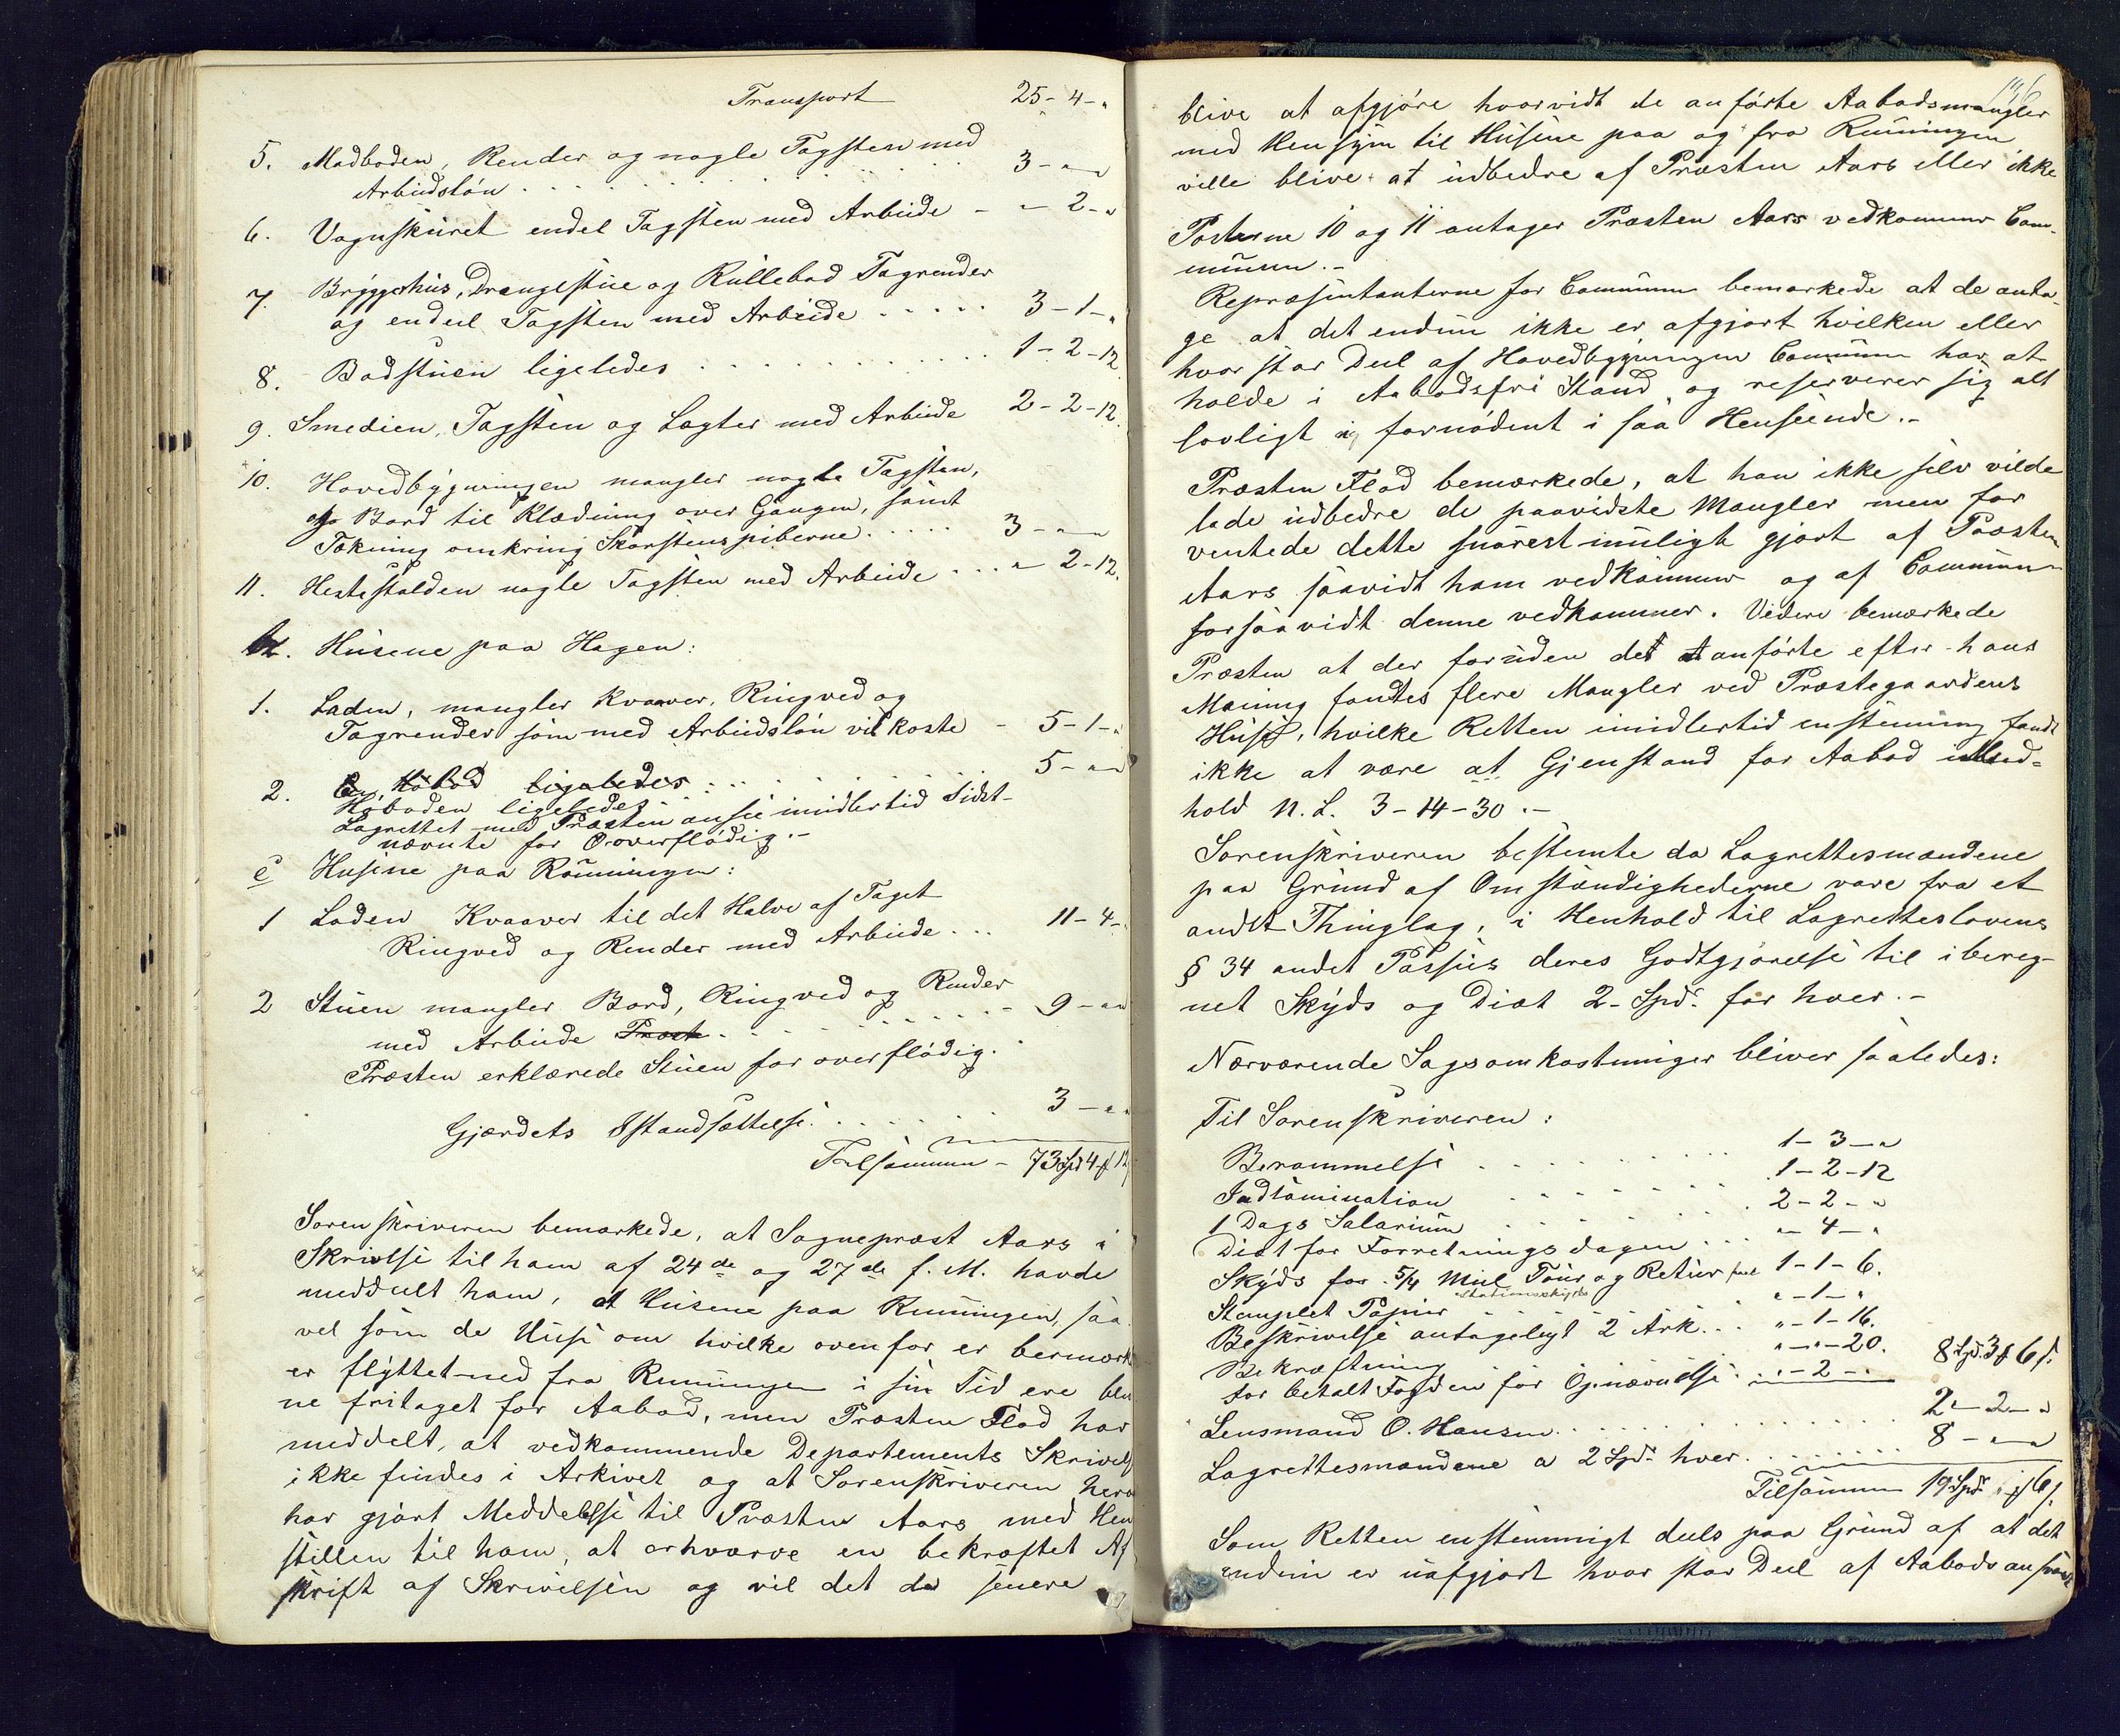 Transport 25-4-"
5. Madboden, Render og nogle Tagsten med
Arbeidsløn . . . 3-"-"
6. Vognskuret endel Tagsten med Arbeide - "-2-"
7. Bryggerhus, Drengestue og Rullebod Tagrender
og endeel Tagsten med Arbeide . . . . . 3-1-"
8. Badstuen ligeledes . . . 1-2-12
9. Smedien, Tagsten og Lægter med Arbeide 2-2-12.
10. Hovedbygningen mangler nogle Tagsten,
Bord til Klædning over Gangen, samt
Tækning omkring Skorstenspiberne . . . . . 3-"-"
11. Hestestalden nogle Tagsten med Arbeide . . . "-2-12.
b. Husene paa Hagen:
1. Laden, mangler Kvaaver, Ringved og
Tagrender som med Arbeidsløn vil koste - 5-1-"
2. Høbod ligeledes . . . 5-"-"
Høboden ligeledes
Lagrettet med Præsten ansee imidlertid Sidst-
nævnte for Ooverflødig.-
c Husene paa Rønningen:
1 Laden Kvaaver til det Halve af Taget
Ringved og Render med Arbeide . . . 11-4-"
2 Stuen mangler Bord, Ringved og Render
med Arbeide Præst . . . 9-"-"
Præsten erklærede Stuen for overflødig.
Gjærdets Istandsættelse . . . 3-"-"
Tilsammen - 73 Spd 4 ƒ 12
Sorenskriveren bemærkede, at Sognepræst Aars i
Skrivelse til ham af 24de og 27de f. M. havde
meddeelt ham, at Husene paa Runningen, saa
vel som de Huse om hvilke ovenfor er bemærk
er flyttet ned fra Runningen i sin Tid ere ble
ne fritaget for Aabod, men Præsten Flod har
meddelt, at vedkommende Departements Skrivels
ikke findes i Arkivet og at Sorenskriveren herom
har gjort Meddelelse til Præsten Aars med Hen
stillen til ham, at erhverve en bekræftet Af
skrift af Skrivelsen og vil det da senere
blive at afgjøre hvorvidt de anførte Aabodsmangler
med Hensyn til Husene paa og fra Runningen
ville blive at udbedre af Præsten Aars eller ikke
Posterne 10 og 11 antager Præsten Aars vedkommer Com-
munen.-
Repræsentanterne for Communen bemærkede at de anta-
ge at det endnu ikke er afgjort hvilken eller
hvor stor Deel af Hovedbygningen Communen har at
holde i Aabodsfri Stand og reserverer sig alt
lovligt og fornødent i saa Henseende.-
Præsten Flod bemærkede, at han ikke selv vilde
lade udbedre de paaviste Mangler men for
ventede dette snarest muligt gjort af Præsten
Aars saavidt ham vedkommer og af Communen
forsaavidt denne vedkommer. Videre bemærkede
Præsten at der foruden det anførte efter hans
Mening fandtes flere Mangler ved Præstegaardens
Huse, hvilke Retten imidlertid enstemmig fandt
ikke at være at Gjenstand for Aabod i Hen-
hold N. L. 3-14-30.-
Sorenskriveren bestemte da Lagrettesmændene
paa Grund af Omstændighederne vare fra et
andet Thinglag, i Henhold til Lagretteslovens
§ 34 andet Passus deres Godtgjørelse til ibereg-
net Skyds og Diæt 2 Spd. for hver.-
Nærværende Sagsomkostninger bliver saaledes:
Til Sorenskriveren:
Berammelse . . . 1-3-"
Incamination . . . 1-2-12
1 Dags Salarium . . . 2-2-"
Diæt for Forretningsdagen . . . "-4-"
Skyds for 5/4 Miil Tour og Retour 1-1-6.
Stationsskyds
Stemplet Papiir . . . "-1-"
Beskrivelse antageligt 2 Ark . . . "-1-16.
Bekræftning "-"-20.
for betalt Fogden for Opnævnelse . "-2-" 8 Spd. 3 ƒ 6 s.
Lensmand O. Hansen . . . 2-2-"
Lagrettesmændene a 2 Spd. hver . . . 8-"-"
Tilsammen 19 Spd. " ƒ 6 s.
Som Retten enstemmigt deels paa Grund af at det
endnu er uafgjort hvor stor Deel af Aabodsansvaret